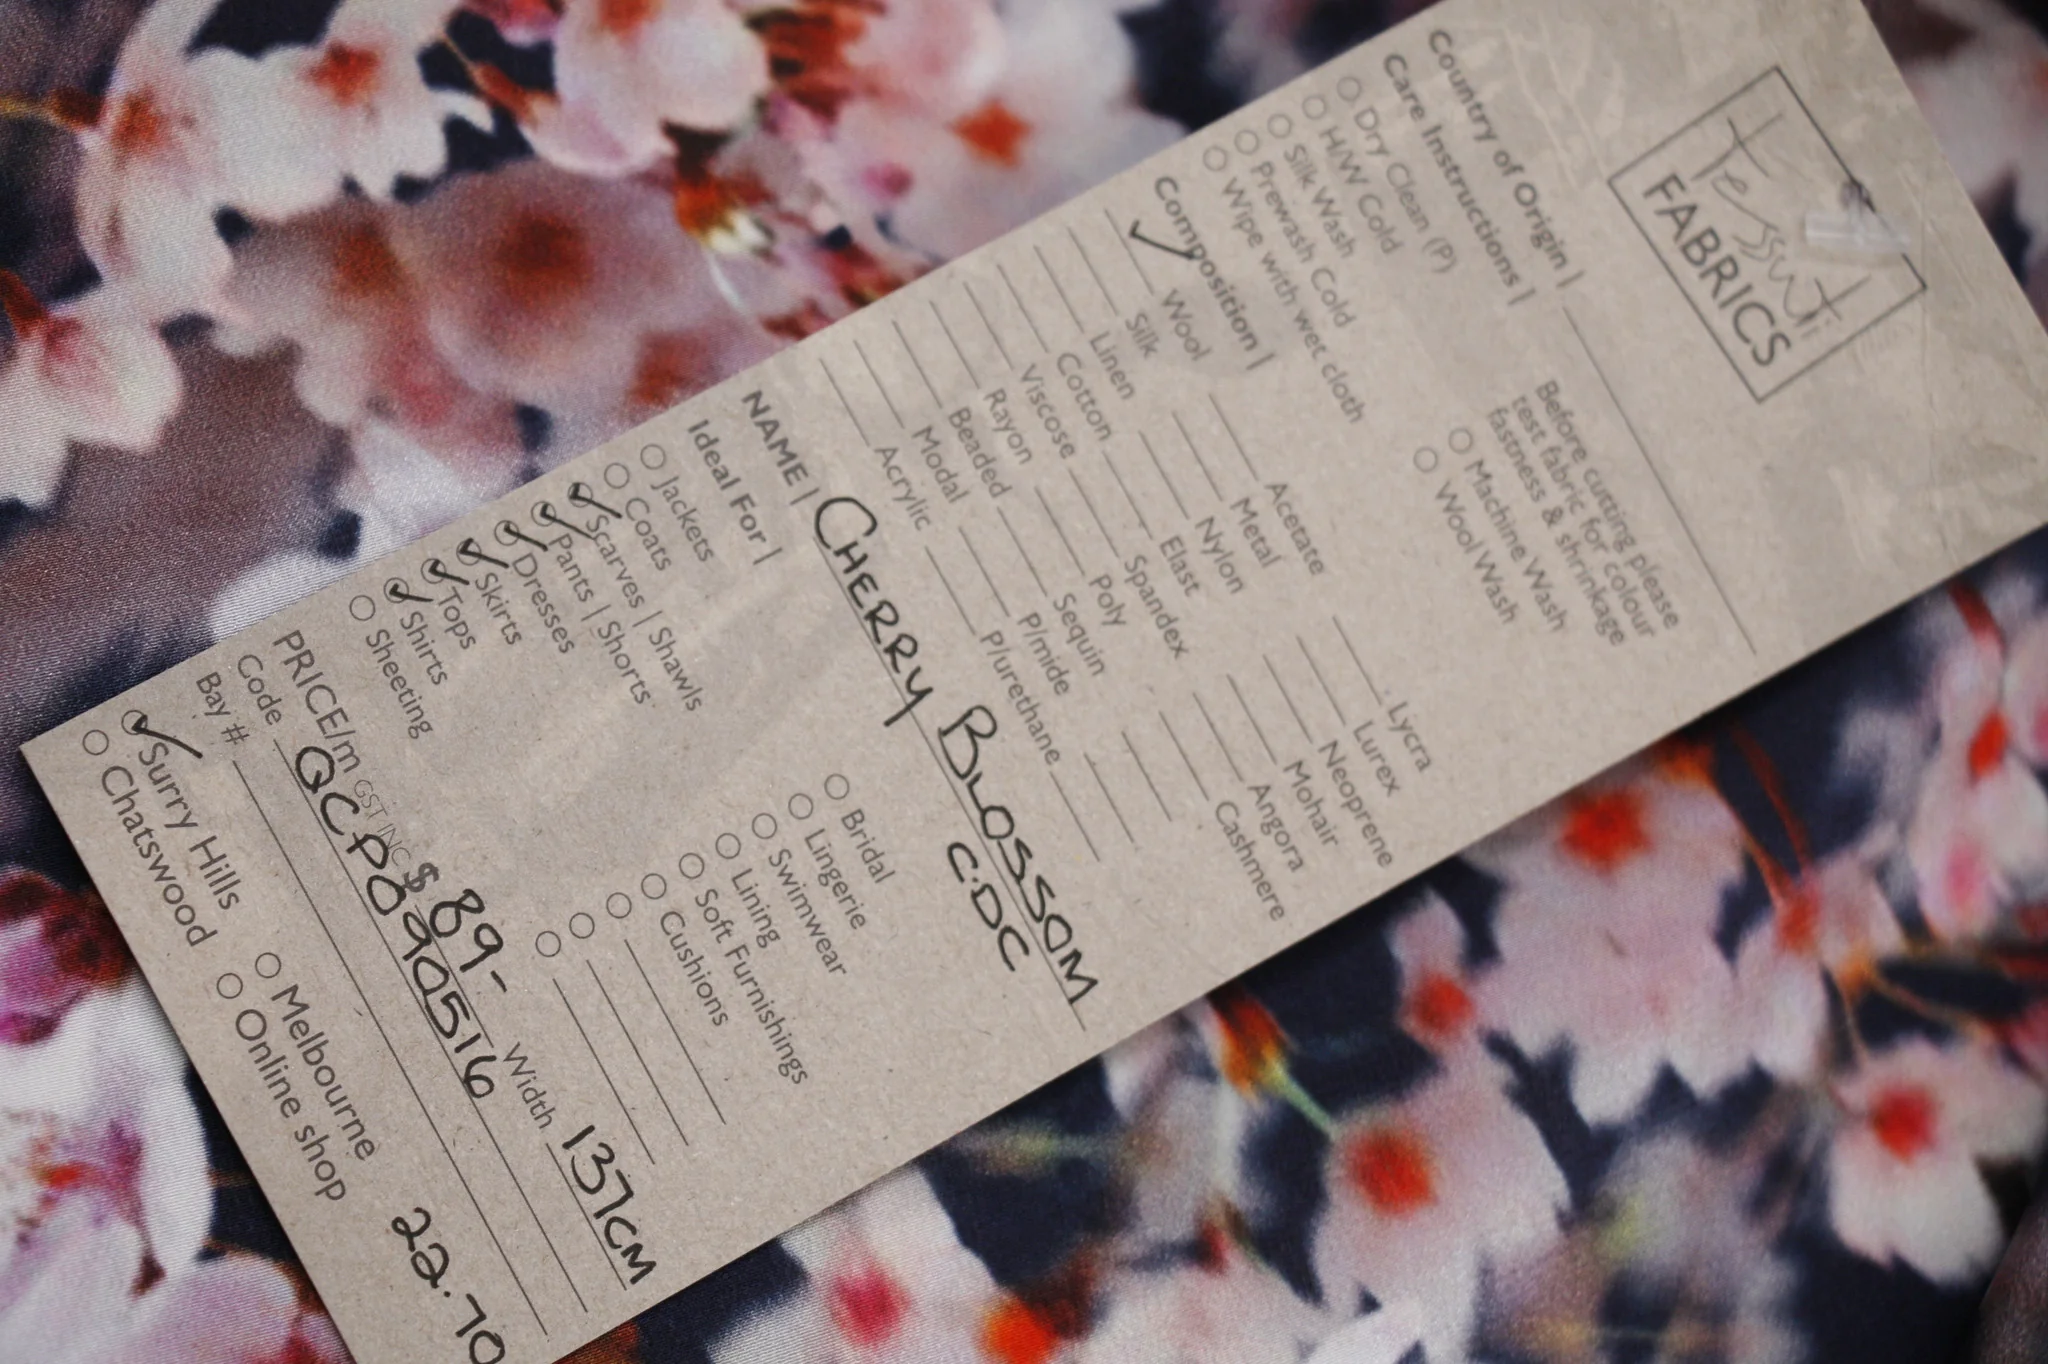 Tessuti
FABRICS
Country of Origin |
Care Instructions |
Dry Clean (P)
H/W Cold
Silk Wash
Prewash Cold
Wipe with wet cloth
Before cutting please
test fabric for colour
fastness & shrinkage
Machine Wash
Wool Wash
Composition |
Wool
Silk
Linen
Cotton
Viscose
Rayon
Beaded
Modal
Acrylic
Acetate
Metal
Nylon
Elast
Spandex
Poly
Sequin
P/mide
P/urethane
Lycra
Lurex
Neoprene
Mohair
Angora
Cashmere
NAME | CHERRY BLOSSOM
C.DC
Ideal For |
Jackets
Coats
Scarves | Shawls
Pants | Shorts
Dresses
Skirts
Tops
Shirts
Sheeting
Bridal
Lingerie
Swimwear
Lining
Soft Furnishings
Cushions
PRICE/m GST INC $89- Width 137CM
Code QCP090516
Bay #
Surry Hills
Chatswood
Melbourne
Online shop
22.70